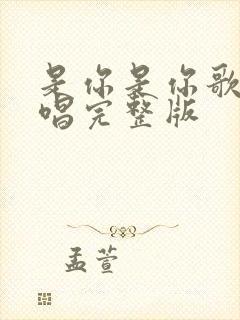 是你是你歌
唱完整版
孟萱